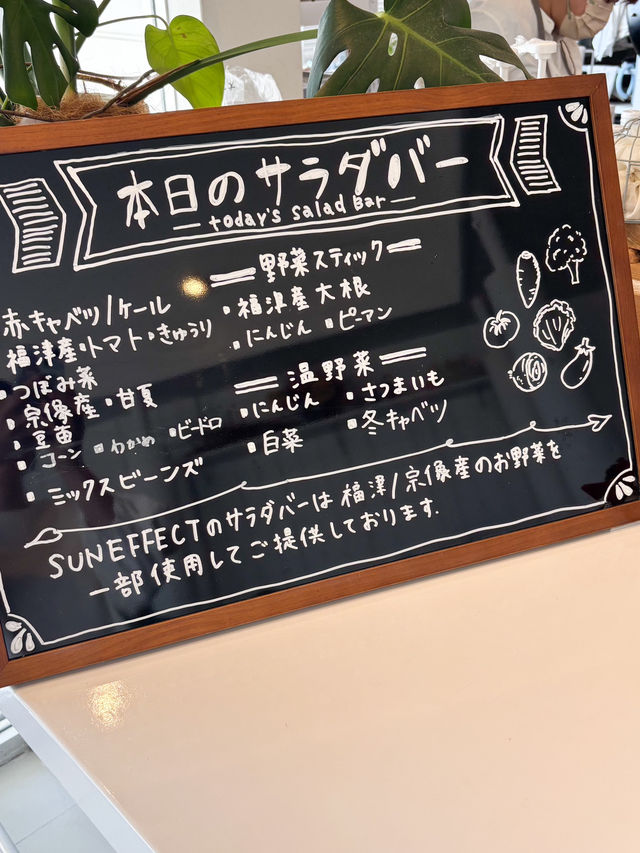 本日のサラダバー
today's salad Bar
赤キャベツ/ケール
福津産・トマト・きゅうり
・つぼみ菜
・宗像産・甘夏
・豆苗
・コーン ・わかめ ・ビードロ
・ミックスビーンズ
野菜スティック
・福津産大根
・にんじん ・ピーマン
温野菜
・にんじん ・さつまいも
・白菜 ・冬キャベツ
SUNEFFECTのサラダバーは福津/宗像産のお野菜を
一部使用してご提供しております.